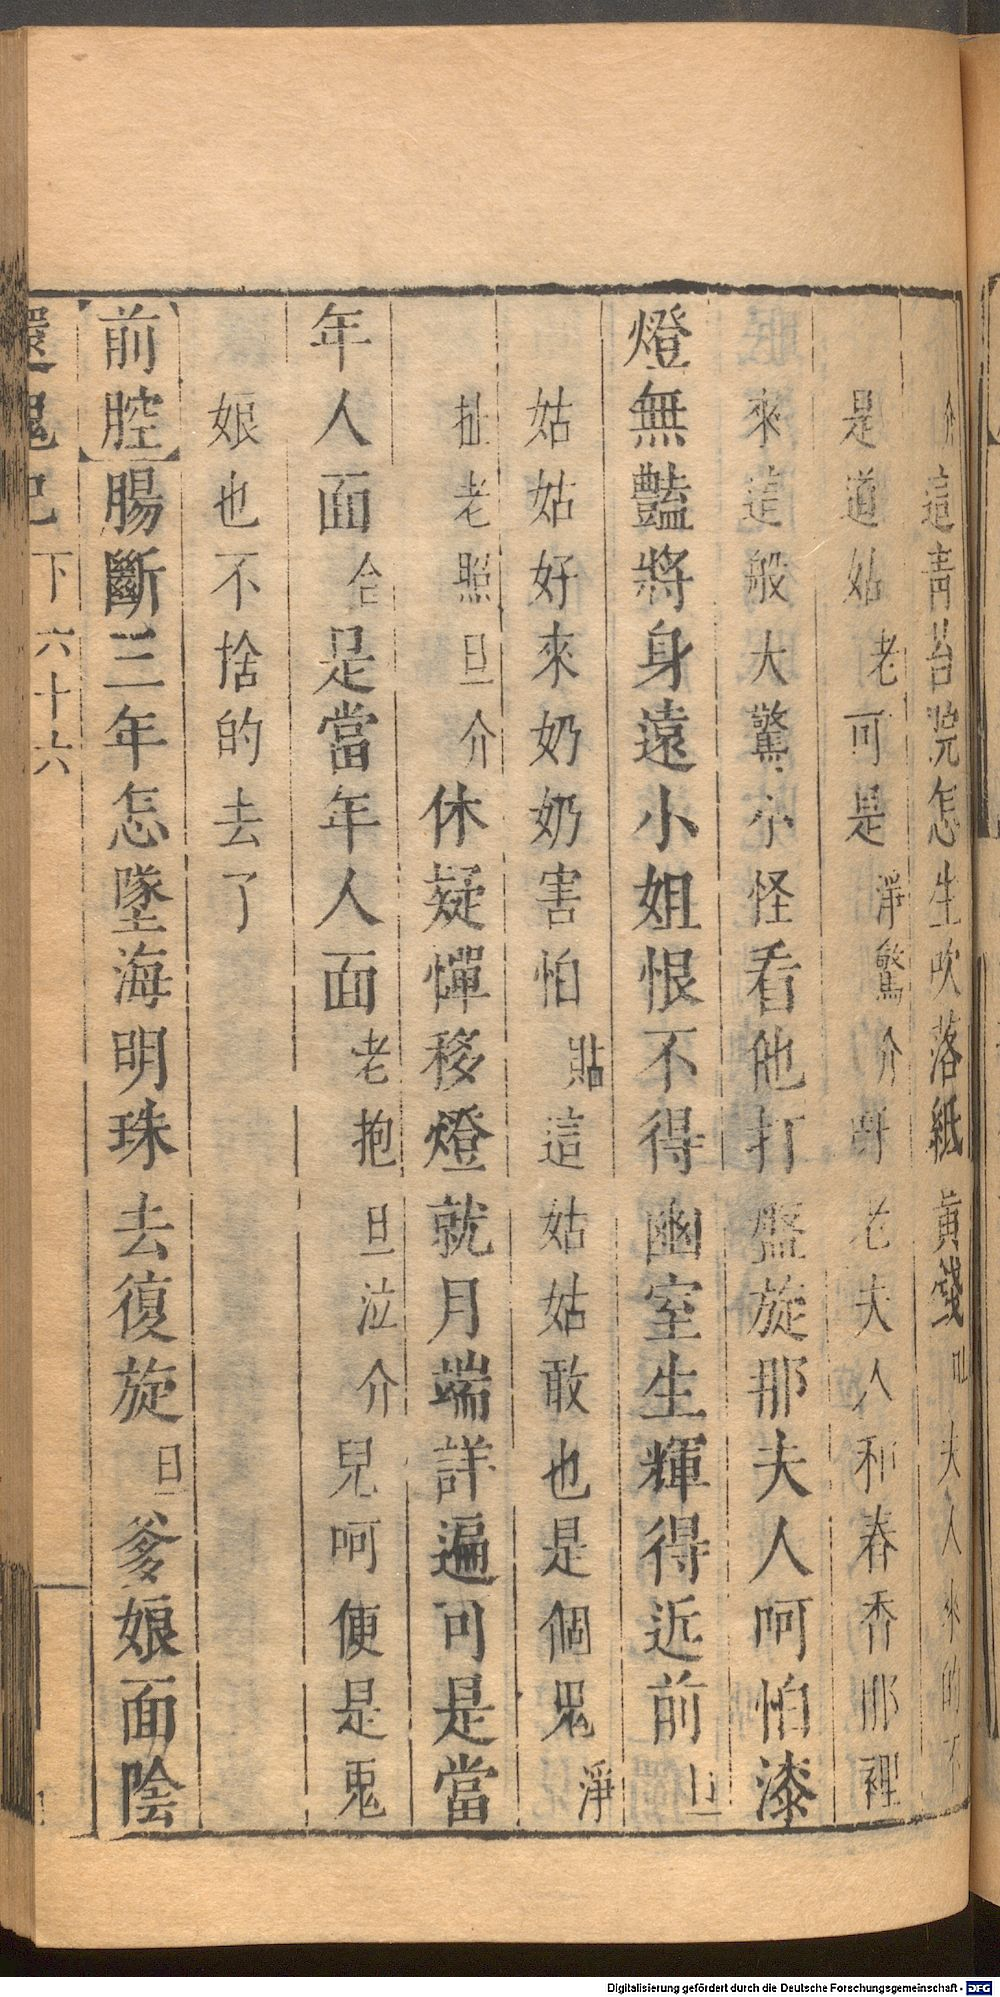 介這青苔院怎生吹落紙黃錢叫夫人來的不
是道姑老可是淨驚介呀老夫人和春香那裡
來這般大驚小怪看他打盤旋那夫人呵怕漆
燈無豔將身遠小姐恨不得幽室生輝得近前旦
姑姑好來奶奶害怕貼這姑姑敢也是個鬼淨
扯老照旦介休疑憚移燈就月端詳遍可是當
年人面合是當年人面老抱旦泣介兒呵便是鬼
娘也不捨的去了
【前腔】腸斷三年怎墜海明珠去復旋旦爹娘面陰
還魂記 下 六十六
Digitalisierung gefördert durch die Deutsche Forschungsgemeinschaft - DFG